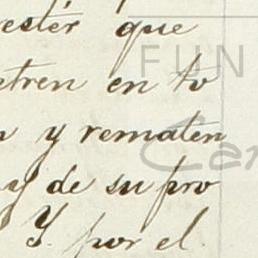 ester que
etren en to
n y rematen
y de su pro
Y por el
FUN
Car